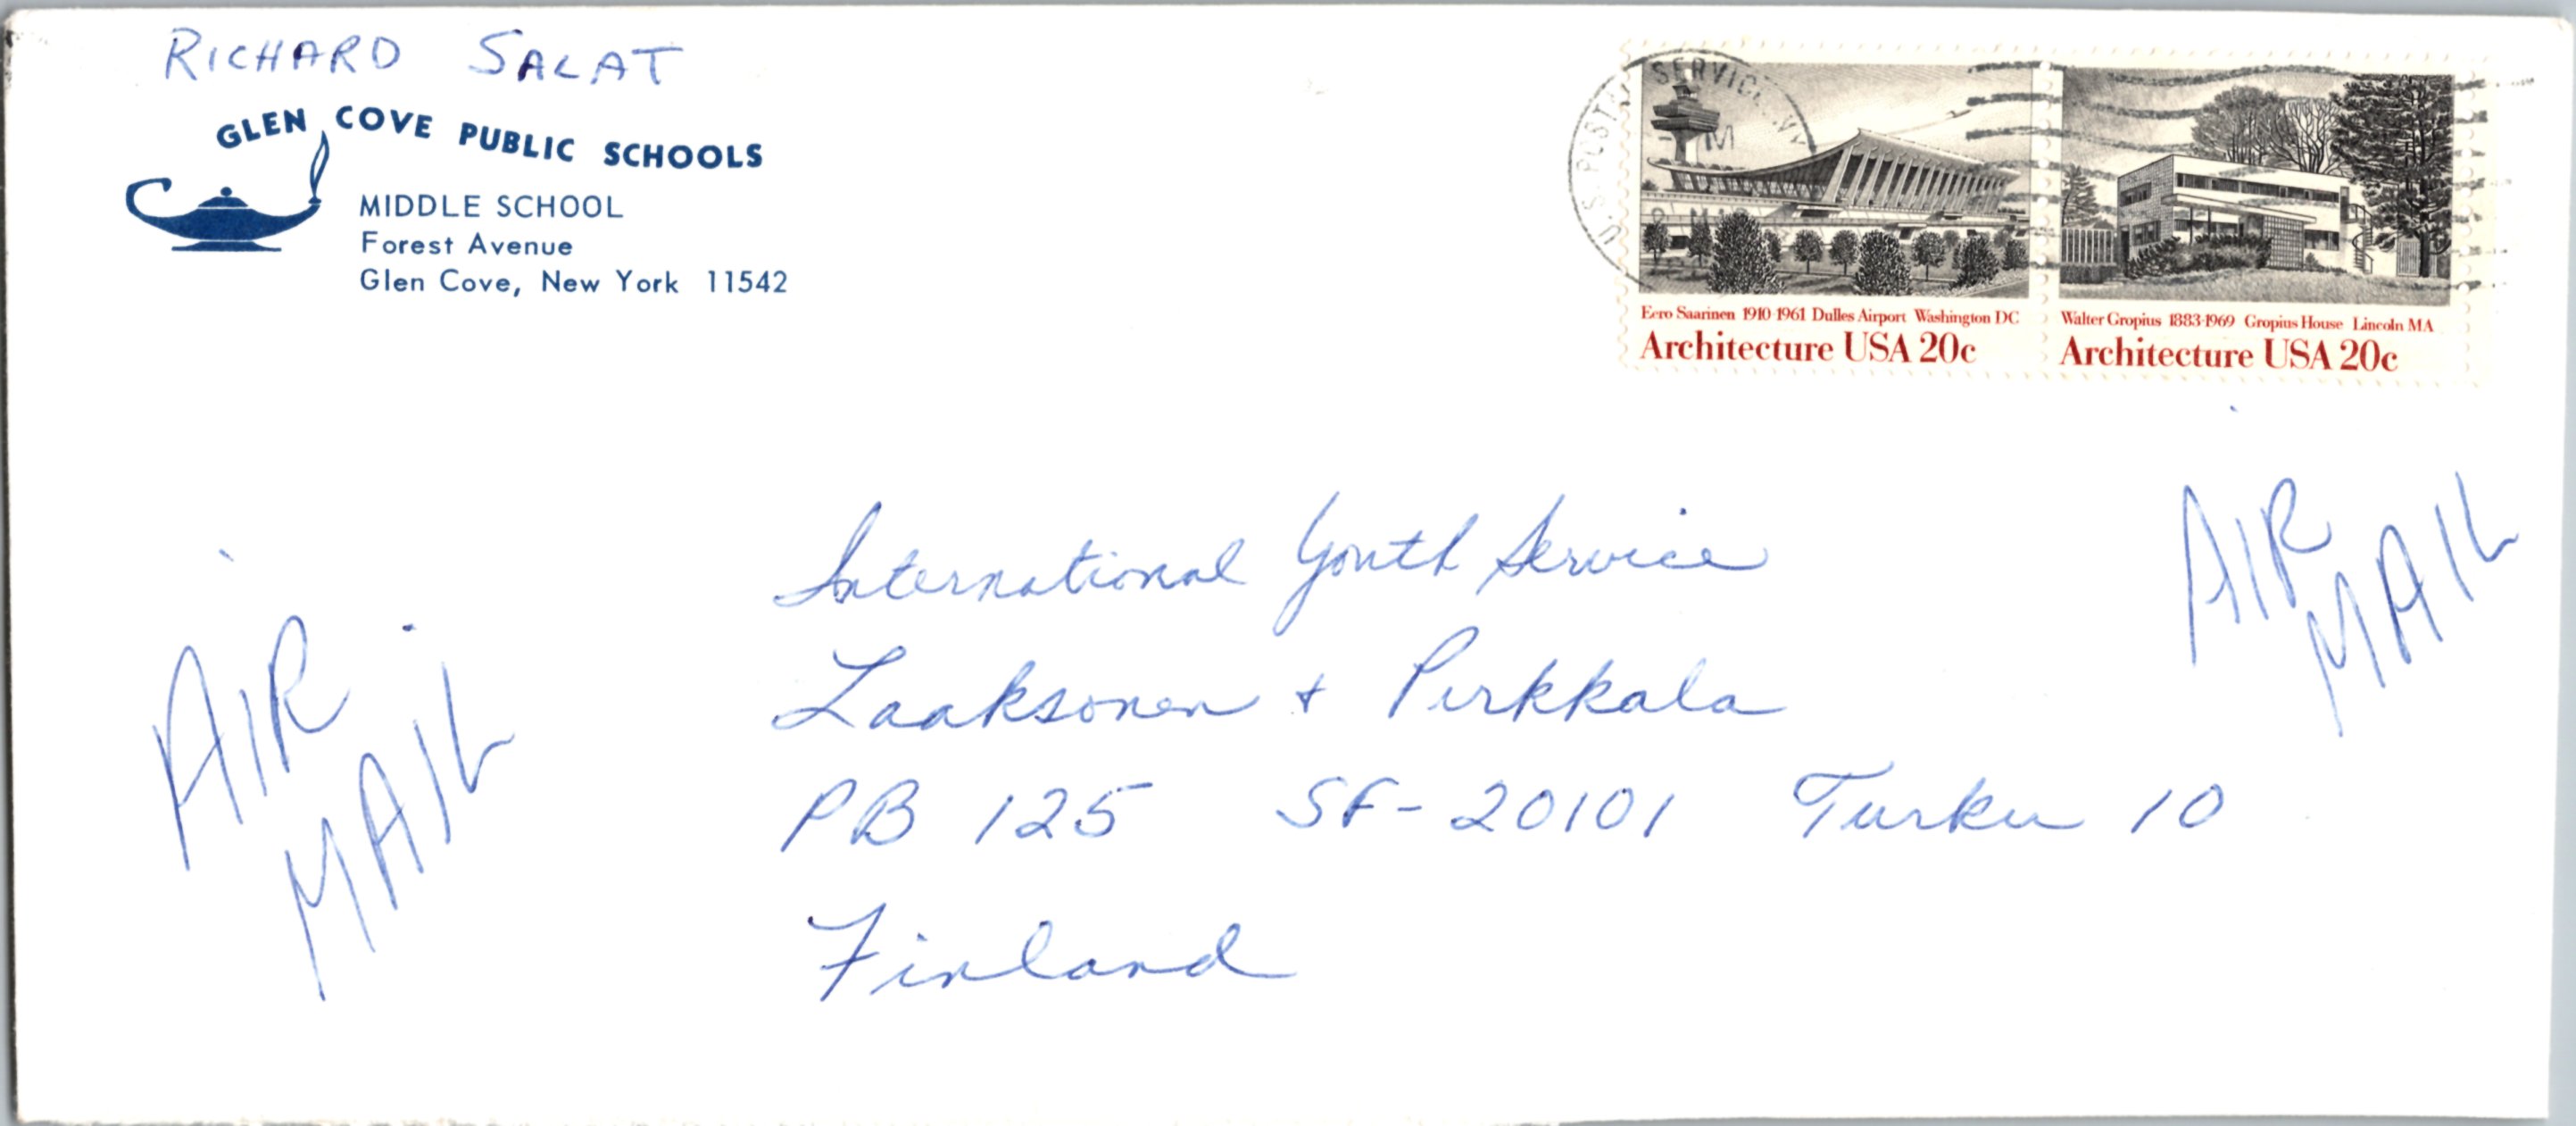 RICHARD SALAT
GLEN COVE PUBLIC SCHOOLS
MIDDLE SCHOOL
Forest Avenue
Glen Cove, New York 11542
U.S. POSTAL SERVICE NY
Eero Saarinen 1910-1961 Dulles Airport Washington DC
Architecture USA 20c
Walter Gropius 1883-1969 Gropius House Lincoln MA
Architecture USA 20c
AIR
MAIL
International Youth Service
Laaksonen + Pirkkala
PB 125 SF-20101 Turku 10
Finland
AIR
MAIL